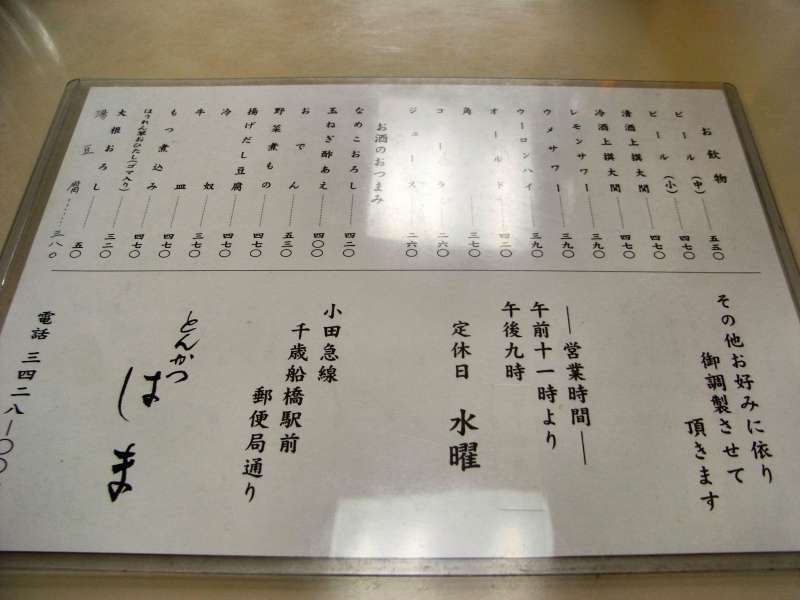 お飲物
ビール(中) 五五〇
ビール(小) 四七〇
清酒上撰大関 四七〇
冷酒上撰大関 三九〇
レモンサワー 三九〇
ウメサワー 三九〇
ウーロンハイ 三九〇
オールド 四二〇
角 三七〇
コーラ 二六〇
ジュース 二六〇
お酒のおつまみ
なめこおろし 四二〇
玉ねぎ酢あえ 四〇〇
おでん 五三〇
野菜煮もの 四七〇
揚げだし豆腐 四七〇
冷奴 三七〇
牛皿 四七〇
もつ煮込み 四七〇
ほうれん草おひたし(ゴマ入り) 四七〇
大根おろし 三二〇
湯豆腐 三八〇
その他お好みに依り
御調製させて
頂きます
―営業時間―
午前十一時より
午後九時
定休日 水曜
小田急線
千歳船橋駅前
郵便局通り
とんかつ
はま
電話 三四二八―〇〇